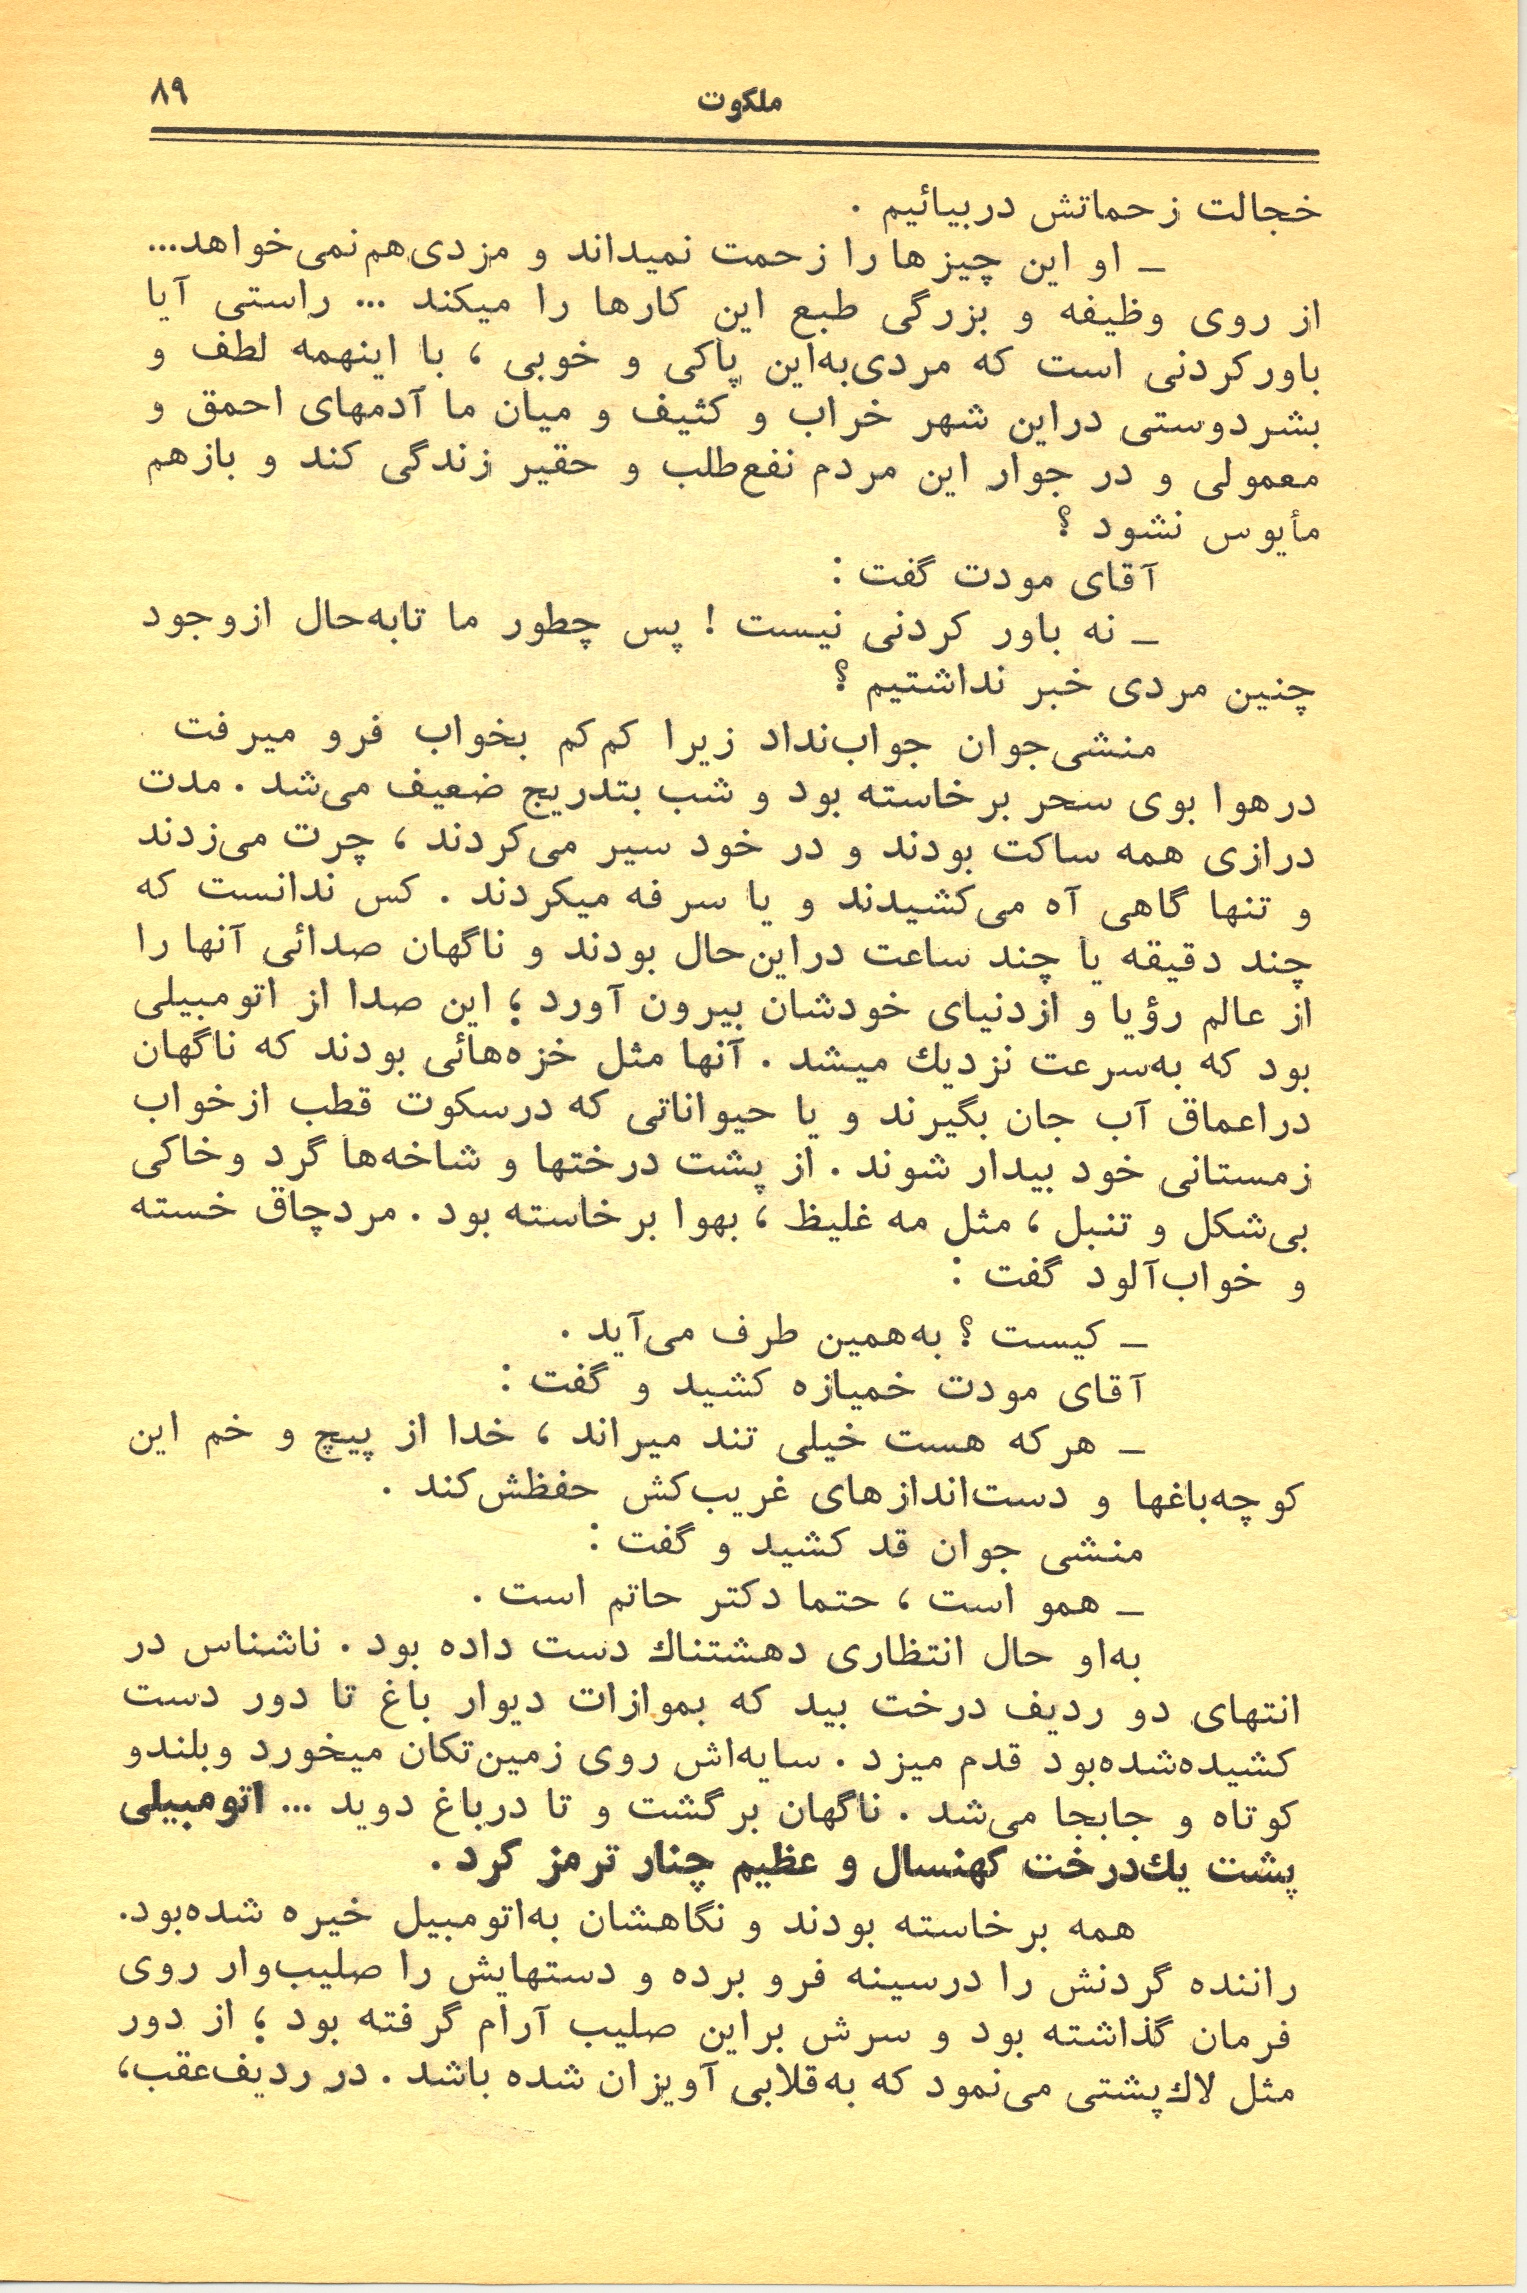 ملکوت
۸۹
خجالت زحماتش دربیائیم .
ـ او این چیزها را زحمت نمیداند و مزدی‌هم‌نمی‌خواهد...
از روی وظیفه و بزرگی طبع این کارها را میکند ... راستی آیا
باورکردنی است که مردی‌به‌این پاکی و خوبی ، با اینهمه لطف و
بشردوستی دراین شهر خراب و کثیف و میان ما آدمهای احمق و
معمولی و در جوار این مردم نفع‌طلب و حقیر زندگی کند و بازهم
مأیوس نشود ؟
آقای مودت گفت :
ـ نه باور کردنی نیست ! پس چطور ما تابه‌حال ازوجود
چنین مردی خبر نداشتیم ؟
منشی‌جوان جواب‌نداد زیرا کم‌کم بخواب فرو میرفت
درهوا بوی سحر برخاسته بود و شب بتدریج ضعیف می‌شد . مدت
درازی همه ساکت بودند و در خود سیر می‌کردند ، چرت می‌زدند
و تنها گاهی آه می‌کشیدند و یا سرفه میکردند . کس ندانست که
چند دقیقه یا چند ساعت دراین‌حال بودند و ناگهان صدائی آنها را
از عالم رؤیا و ازدنیای خودشان بیرون آورد ؛ این صدا از اتومبیلی
بود که به‌سرعت نزدیك میشد . آنها مثل خزه‌هائی بودند که ناگهان
دراعماق آب جان بگیرند و یا حیواناتی که درسکوت قطب ازخواب
زمستانی خود بیدار شوند . از پشت درختها و شاخه‌ها گرد وخاکی
بی‌شکل و تنبل ، مثل مه غلیظ ، بهوا برخاسته بود . مردچاق خسته
و خواب‌آلود گفت :
ـ کیست ؟ به‌همین طرف می‌آید .
آقای مودت خمیازه کشید و گفت :
ـ هرکه هست خیلی تند میراند ، خدا از پیچ و خم این
کوچه‌باغها و دست‌اندازهای غریب‌کش حفظش‌کند .
منشی جوان قد کشید و گفت :
ـ همو است ، حتما دکتر حاتم است .
به‌او حال انتظاری دهشتناك دست داده بود . ناشناس در
انتهای دو ردیف درخت بید که بموازات دیوار باغ تا دور دست
کشیده‌شده‌بود قدم میزد . سایه‌اش روی زمین‌تکان میخورد وبلندو
کوتاه و جابجا می‌شد . ناگهان برگشت و تا درباغ دوید ... اتومبیلی
پشت یك‌درخت کهنسال و عظیم چنار ترمز کرد .
همه برخاسته بودند و نگاهشان به‌اتومبیل خیره شده‌بود.
راننده گردنش را درسینه فرو برده و دستهایش را صلیب‌وار روی
فرمان گذاشته بود و سرش براین صلیب آرام گرفته بود ؛ از دور
مثل لاك‌پشتی می‌نمود که به‌قلابی آویزان شده باشد . در ردیف‌عقب،